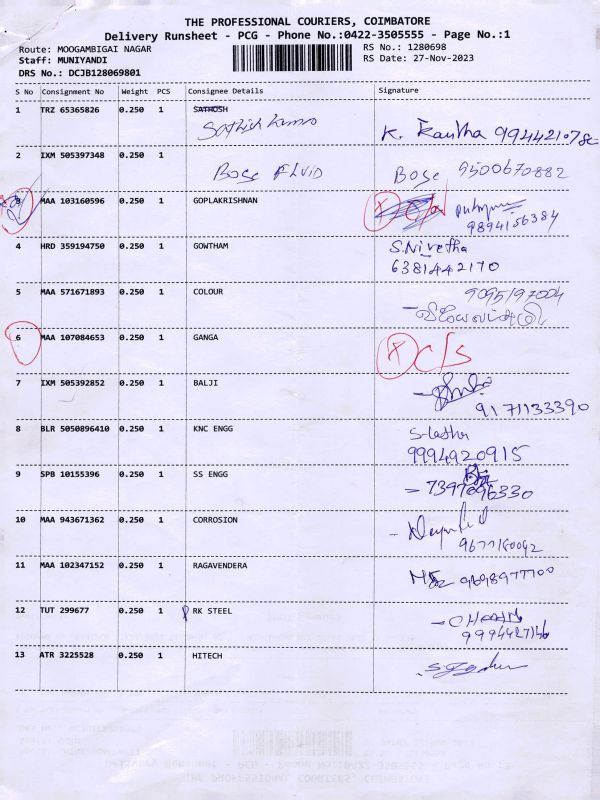 THE PROFESSIONAL COURIERS, COIMBATORE
Delivery Runsheet - PCG - Phone No.:0422-3505555 - Page No.:1
Route: MOOGAMBIGAI NAGAR RS No.: 1280698
Staff: MUNIYANDI RS Date: 27-Nov-2023
DRS No.: DCJB128069801
S No Consignment No Weight PCS Consignee Details Signature
1 TRZ 65365826 0.250 1 SATHOSH
Sathish K. Kavitha
2 IXM 505397348 0.250 1
Bose Fluid Bose 9500670882
3 MAA 103160596 0.250 1 GOPLAKRISHNAN
9894156384
4 HRD 359194750 0.250 1 GOWTHAM S.Nivetha
6381442170
5 MAA 571671893 0.250 1 COLOUR 9095197004
6 MAA 107084653 0.250 1 GANGA X C/S
7 IXM 505392852 0.250 1 BALJI
9171133390
8 BLR 5050896410 0.250 1 KNC ENGG S-Latha
9994920915
9 SPB 10155396 0.250 1 SS ENGG
- 7397096330
10 MAA 943671362 0.250 1 CORROSION
11 MAA 102347152 0.250 1 RAGAVENDERA
9698977700
12 TUT 299677 0.250 1 RK STEEL
13 ATR 3225528 0.250 1 HITECH